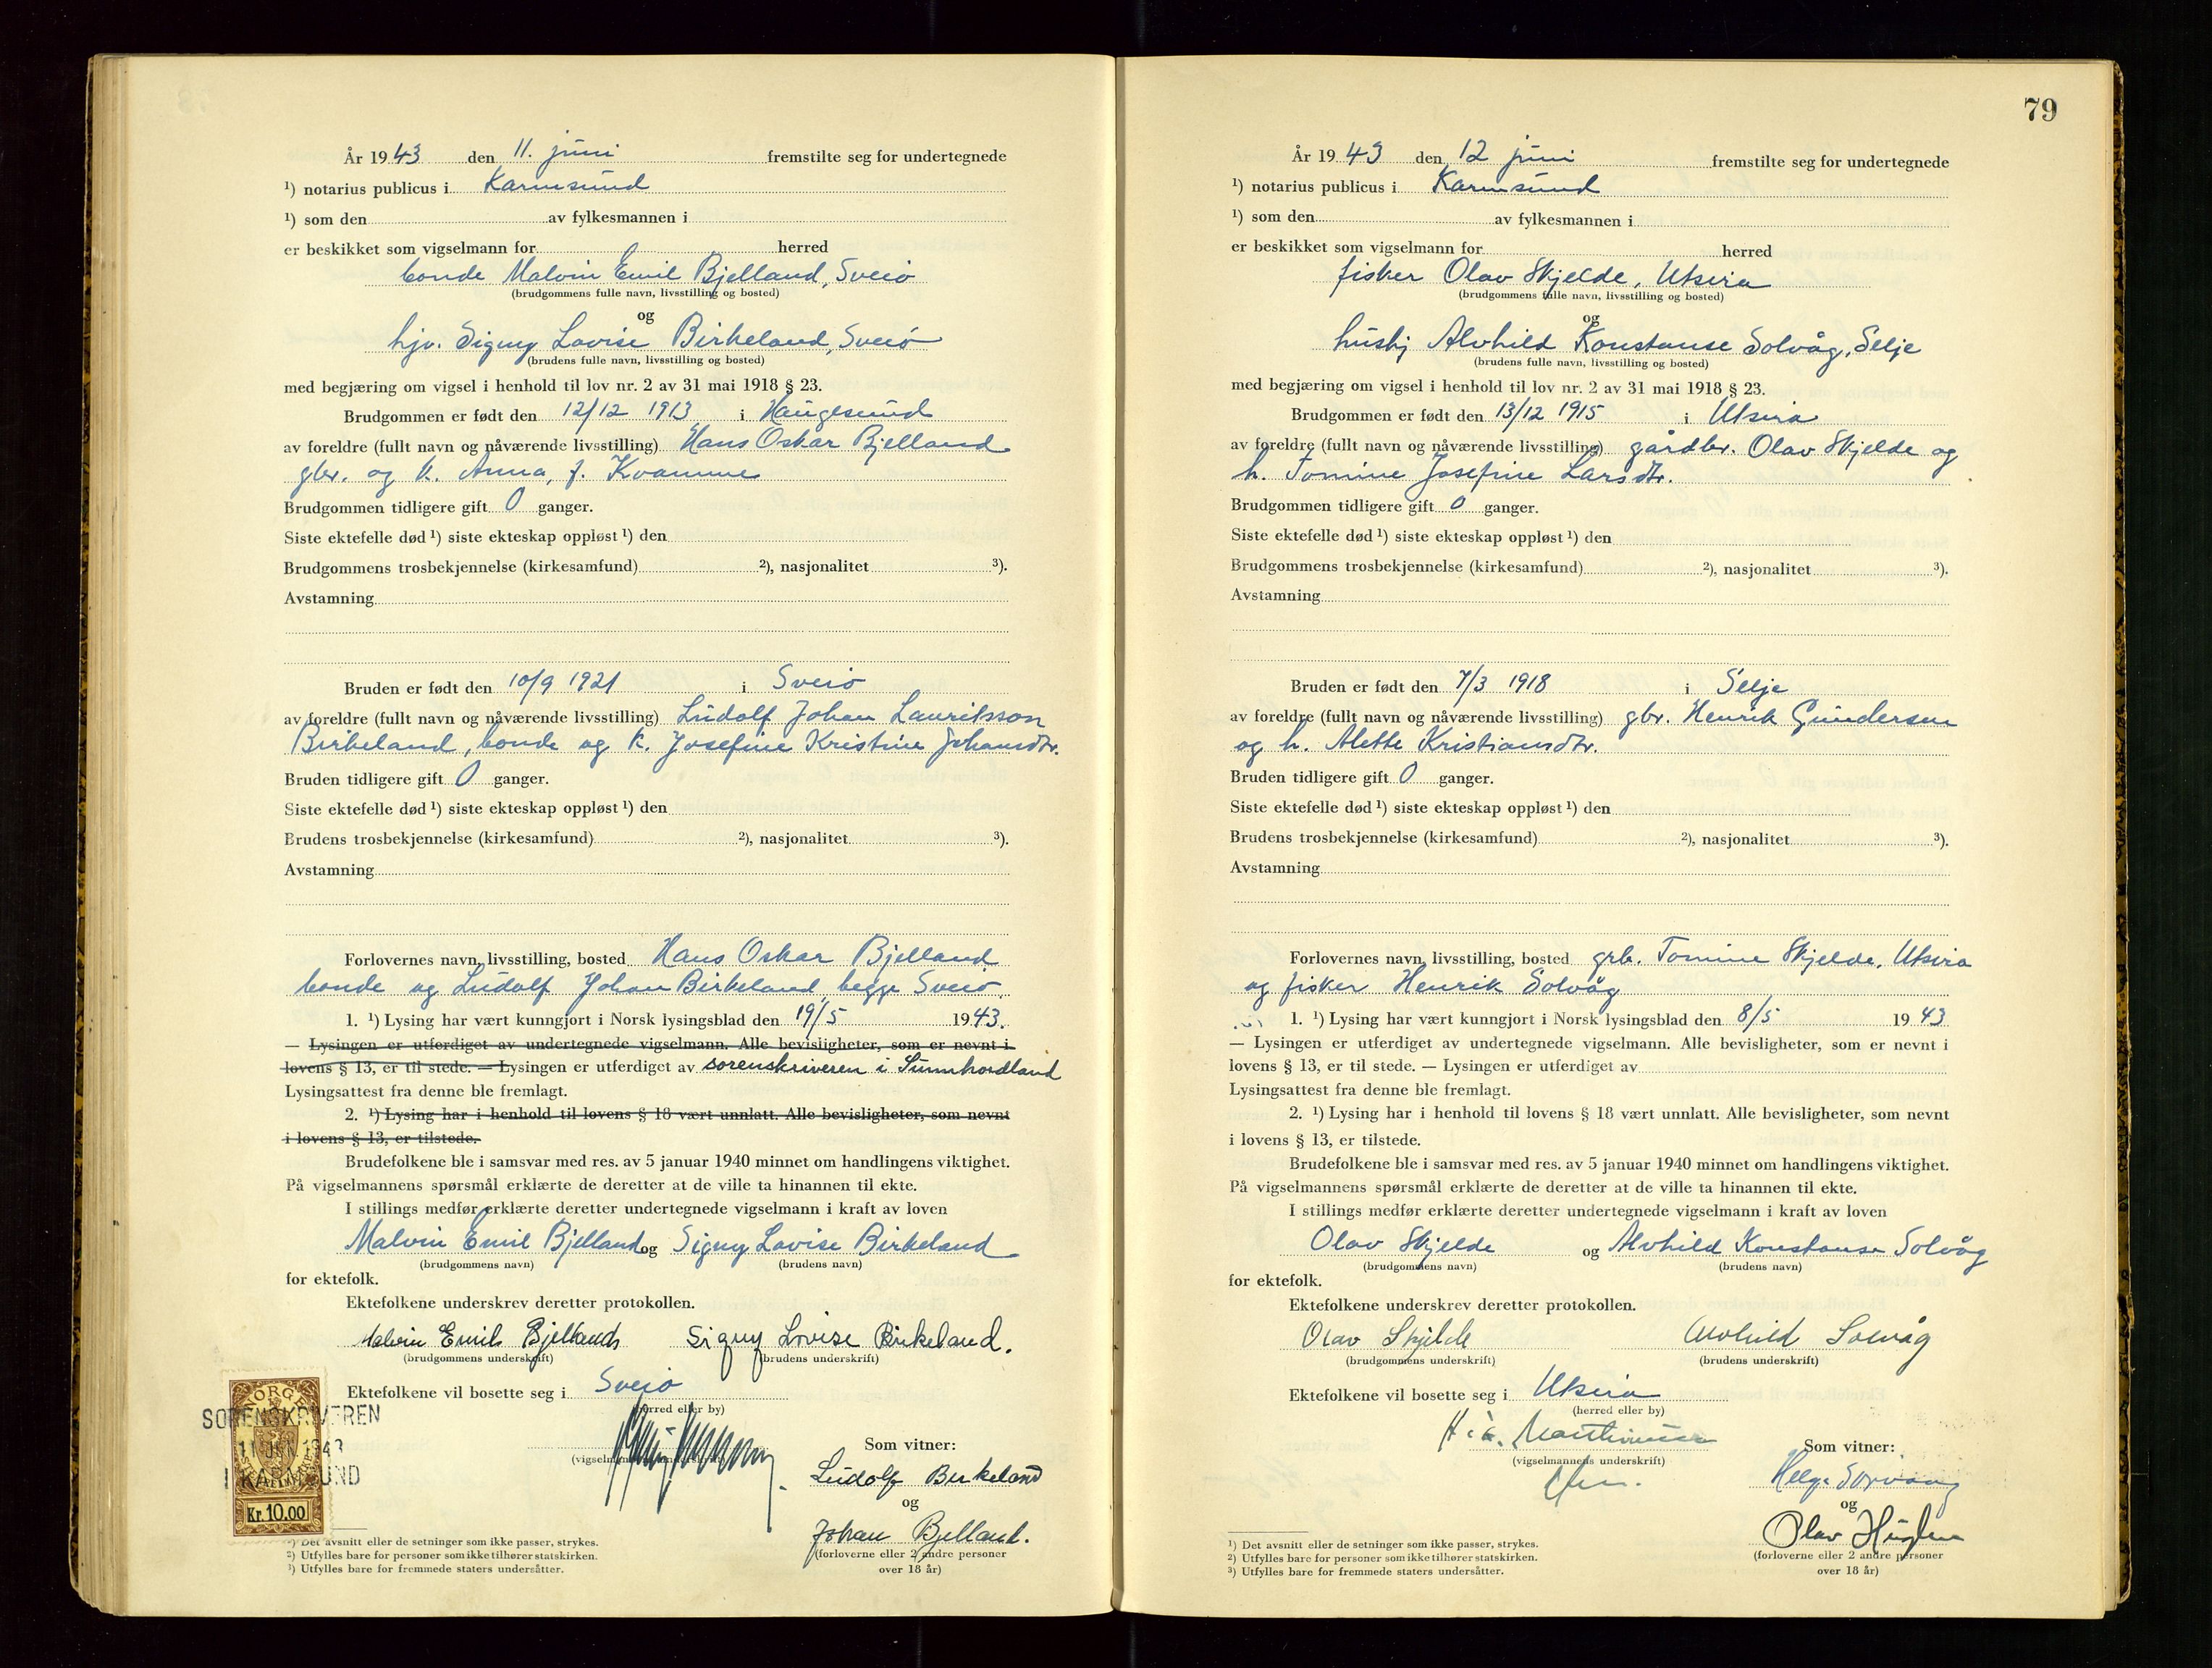 År 1943 den 11. juni fremstilte seg for undertegnede
¹) notarius publicus i Karmsund
¹) som den av fylkesmannen i
er beskikket som vigselmann for herred
bonde Malvin Emil Bjelland, Sveio
(brudgommens fulle navn, livsstilling og bosted)
og
hjv. Signy Lovise Birkeland, Sveio
(brudens fulle navn, livsstilling og bosted)
med begjæring om vigsel i henhold til lov nr. 2 av 31 mai 1918 § 23.
Brudgommen er født den 12/12 1913 i Haugesund
av foreldre (fullt navn og nåværende livsstilling) Hans Oskar Bjelland
gbr. og k. Anna, f. Kvamme
Brudgommen tidligere gift 0 ganger.
Siste ektefelle død ¹) siste ekteskap oppløst ¹) den
Brudgommens trosbekjennelse (kirkesamfund) ²), nasjonalitet ³).
Avstamning
Bruden er født den 10/9 1921 i Sveio
av foreldre (fullt navn og nåværende livsstilling) Ludolf Johan Lauritsson
Birkeland, bonde og k. Josefine Kristine Johansdtr.
Bruden tidligere gift 0 ganger.
Siste ektefelle død ¹) siste ekteskap oppløst ¹) den
Brudens trosbekjennelse (kirkesamfund) ²), nasjonalitet ³).
Avstamning
Forlovernes navn, livsstilling, bosted Hans Oskar Bjelland
bonde og Ludolf Johan Birkeland, begge Sveio.
1. ¹) Lysing har vært kunngjort i Norsk lysingsblad den 19/5 1943.
— Lysingen er utferdiget av undertegnede vigselmann. Alle bevisligheter, som er nevnt i
lovens § 13, er til stede. — Lysingen er utferdiget av sorenskriveren i Sunnhordland
Lysingsattest fra denne ble fremlagt.
2. ¹) Lysing har i henhold til lovens § 18 vært unnlatt. Alle bevisligheter, som nevnt
i lovens § 13, er tilstede.
Brudefolkene ble i samsvar med res. av 5 januar 1940 minnet om handlingens viktighet.
På vigselmannens spørsmål erklærte de deretter at de ville ta hinannen til ekte.
I stillings medfør erklærte deretter undertegnede vigselmann i kraft av loven
Malvin Emil Bjelland og Signy Lovise Birkeland
(brudgommens navn) (brudens navn)
for ektefolk.
Ektefolkene underskrev deretter protokollen.
Malvin Emil Bjelland Signy Lovise Birkeland.
(brudgommens underskrift) (brudens underskrift)
Ektefolkene vil bosette seg i Sveio
(herred eller by)
NORGE
SORENSKRIVEREN
11 JUN 1943
I KARMSUND
Kr. 10.00
(vigselmannens underskrift)
Som vitner:
Ludolf Birkeland
og
Johan Bjelland.
(forloverne eller 2 andre personer
over 18 år)
¹) Det avsnitt eller de setninger som ikke passer, strykes.
²) Utfylles bare for personer som ikke tilhører statskirken.
³) Utfylles bare for fremmede staters undersåtter.
79
År 1943 den 12 juni fremstilte seg for undertegnede
¹) notarius publicus i Karmsund
¹) som den av fylkesmannen i
er beskikket som vigselmann for herred
fisker Olav Skjelde, Utsira
(brudgommens fulle navn, livsstilling og bosted)
og
hushj Alvhild Konstanse Solvåg, Selje
(brudens fulle navn, livsstilling og bosted)
med begjæring om vigsel i henhold til lov nr. 2 av 31 mai 1918 § 23.
Brudgommen er født den 13/12 1915 i Utsira
av foreldre (fullt navn og nåværende livsstilling) gårdbr. Olav Skjelde og
h. Tomine Josefine Larsdtr.
Brudgommen tidligere gift 0 ganger.
Siste ektefelle død ¹) siste ekteskap oppløst ¹) den
Brudgommens trosbekjennelse (kirkesamfund) ²), nasjonalitet ³).
Avstamning
Bruden er født den 7/3 1918 i Selje
av foreldre (fullt navn og nåværende livsstilling) gbr. Henrik Gundersen
og h. Alette Kristiansdtr.
Bruden tidligere gift 0 ganger.
Siste ektefelle død ¹) siste ekteskap oppløst ¹) den
Brudens trosbekjennelse (kirkesamfund) ²), nasjonalitet ³).
Avstamning
Forlovernes navn, livsstilling, bosted grb. Tomine Skjelde, Utsira
og fisker Henrik Solvåg
1. ¹) Lysing har vært kunngjort i Norsk lysingsblad den 8/5 1943
— Lysingen er utferdiget av undertegnede vigselmann. Alle bevisligheter, som er nevnt i
lovens § 13, er til stede. — Lysingen er utferdiget av
Lysingsattest fra denne ble fremlagt.
2. ¹) Lysing har i henhold til lovens § 18 vært unnlatt. Alle bevisligheter, som nevnt
i lovens § 13, er tilstede.
Brudefolkene ble i samsvar med res. av 5 januar 1940 minnet om handlingens viktighet.
På vigselmannens spørsmål erklærte de deretter at de ville ta hinannen til ekte.
I stillings medfør erklærte deretter undertegnede vigselmann i kraft av loven
Olav Skjelde og Alvhild Konstanse Solvåg
(brudgommens navn) (brudens navn)
for ektefolk.
Ektefolkene underskrev deretter protokollen.
Olav Skjelde Alvhild Solvåg
(brudgommens underskrift) (brudens underskrift)
Ektefolkene vil bosette seg i Utsira
(herred eller by)
(vigselmannens underskrift)
Som vitner:
Helge
og
Olav
(forloverne eller 2 andre personer
over 18 år)
¹) Det avsnitt eller de setninger som ikke passer, strykes.
²) Utfylles bare for personer som ikke tilhører statskirken.
³) Utfylles bare for fremmede staters undersåtter.